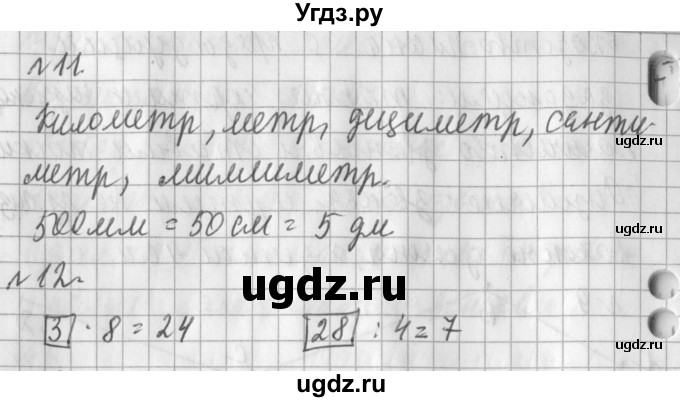 Угдз.ру
№11.
километр, метр, дециметр, санти-
метр, миллиметр.
500мм = 50см = 5 дм
№12.
ugdz.ru
3 · 8 = 24 28 : 4 = 7
ugdz.ru
ugdz.ru
ugdz.ru
ugdz.ru
ugdz.ru
ugdz.ru
ugdz.ru